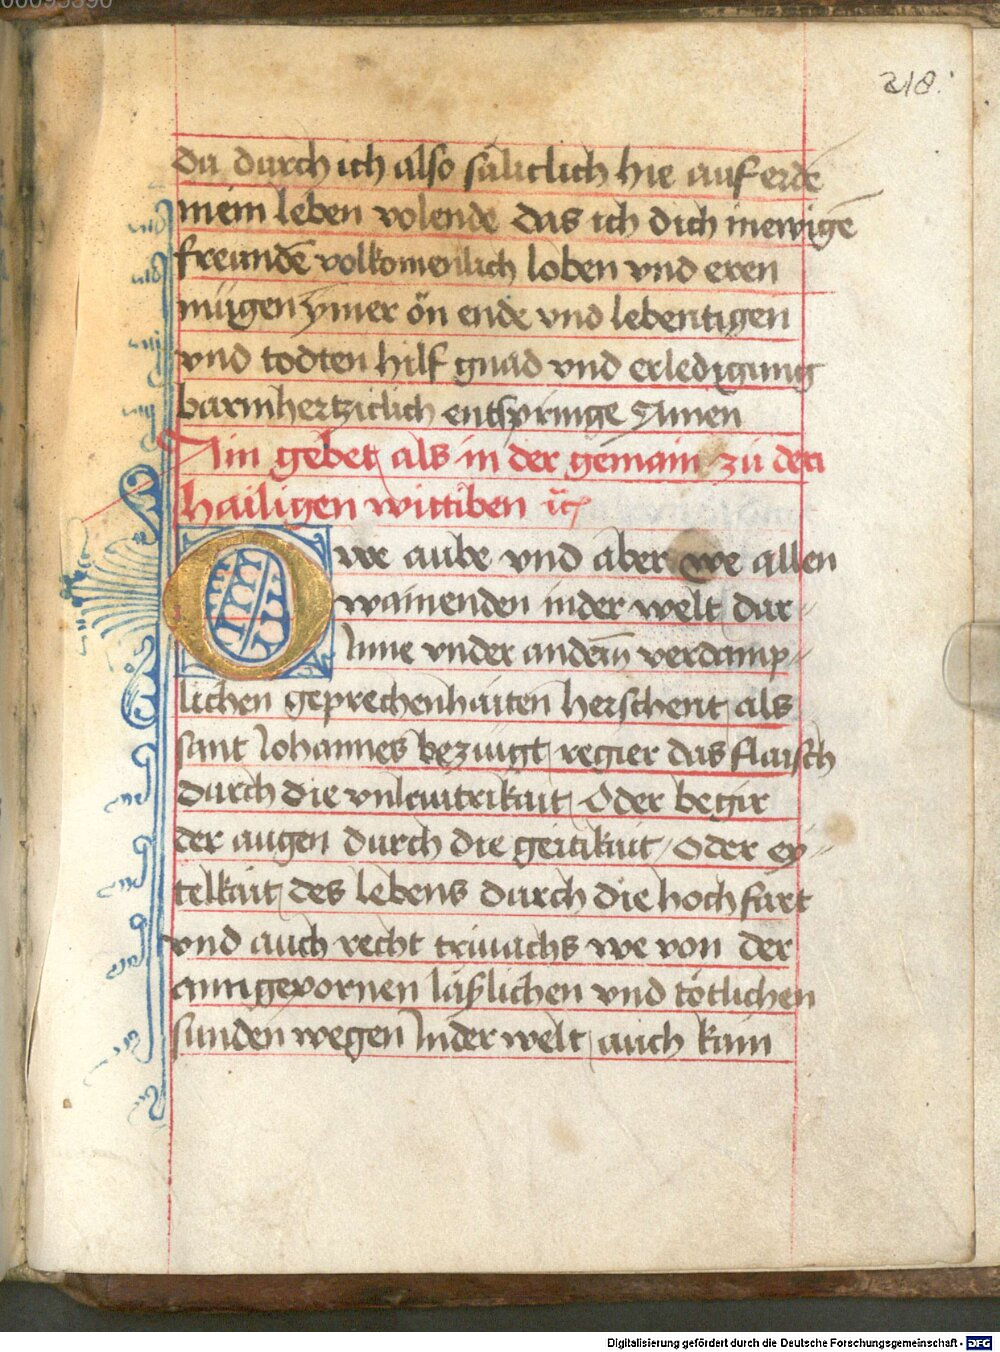 00095390
218.
da durch ich also säliclich hie auf erdē
mein leben volende das ich dich inewigē
freundē volkomenlich loben vnd eren
mügen ymer ön ende vnd lebentigen
vnd todten hilf gnad vnd erledigung
barmhertziclich entspringe Amen
Ain gebet als in der gemain zü den
hailigen wittiben ꝛc̄
O we aube vnd aber we allen
wainenden inder welt dar-
Inne vnder anderm̄ verdamp-
lichen geprechenhaiten herschent als
sant Iohannes bezüigt regier das flaisch
durch die vnlautrikait Oder begir
der augen durch die geitikait Oder ey-
telkait des lebens durch die hochfart
vnd auch recht triuachs we von der
anngevornen läßlichen vnd tötlichen
sunden wegen Inder welt auch kain
Digitalisierung gefördert durch die Deutsche Forschungsgemeinschaft - DFG